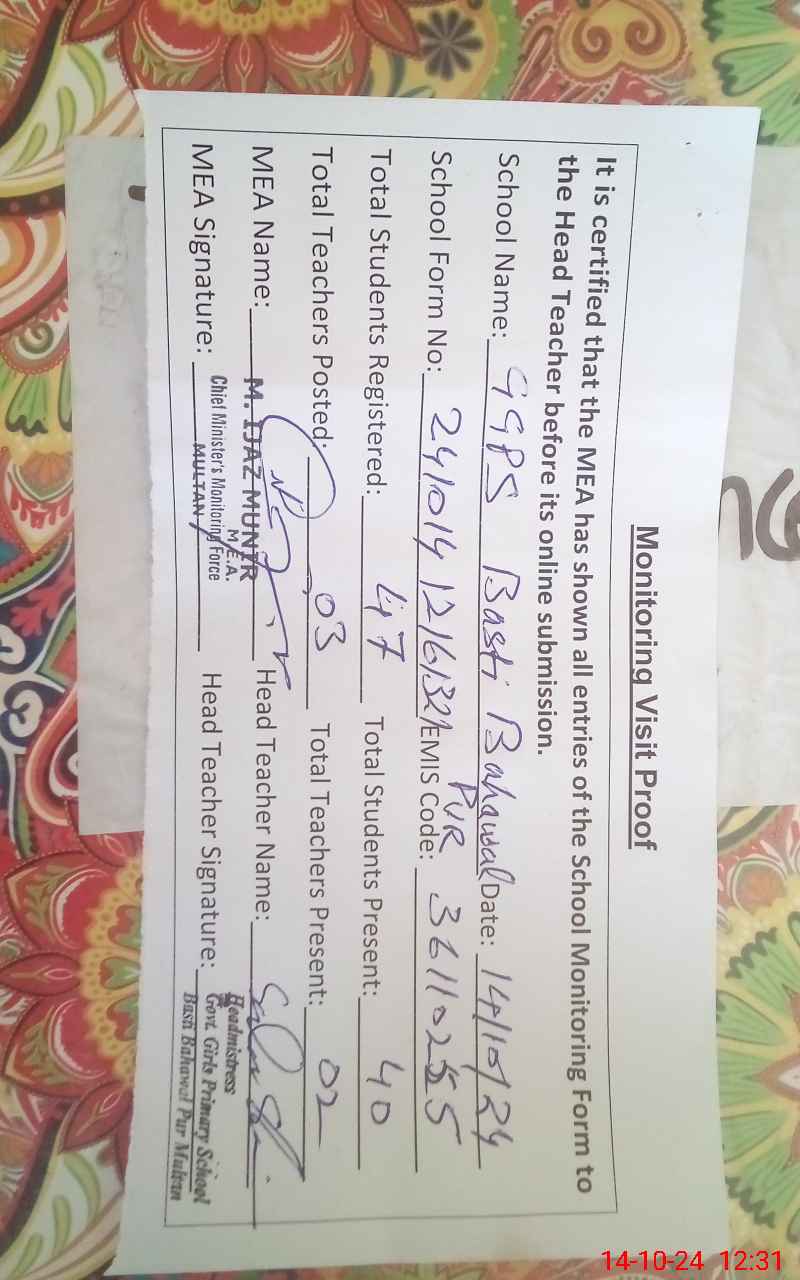 Monitoring Visit Proof
It is certified that the MEA has shown all entries of the School Monitoring Form to
the Head Teacher before its online submission.
School Name: GGPS Basti Bahawal Date: 14/10/24
PUR
School Form No: EMIS Code:
Total Students Registered: 47 Total Students Present: 40
Total Teachers Posted: 03 Total Teachers Present: 02
MEA Name: M. IJAZ MUNIR Head Teacher Name:
M.E.A.
MEA Signature: Chief Minister's Monitoring Force Head Teacher Signature:
MULTAN
Headmistress
Govt. Girls Primary School
Basti Bahawal Pur Multan
14-10-24 12:31